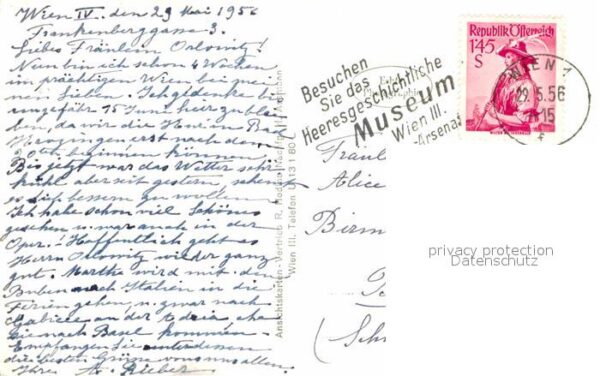 Wien IV. den 29 Mai 1956
Frankenberggasse 3.
Liebes Fräulein Orlowitz!
Nun bin ich schon 4 Wochen
im prächtigen Wien bei meinen
Lieben. Ich gedenke bis
ungefähr 15 Juni hier zu bleiben,
da wir die Kuren erst nach dem
beginnen können.
Bis jetzt war das Wetter sehr
kühl aber seit gestern, scheint
es sich bessern zu wollen.
Ich habe schon viel Schönes
gesehen u. war auch in der
Oper! Hoffentlich geht es
Herrn Orlowitz wieder ganz
gut. Marthe wird mit den
Buben nach Italien in die
Ferien gehen, u. zwar nach
nach Basel kommen.
Empfangen Sie unterdessen
die besten Grüsse von uns allen.
Ihre A. Rieber
Ansichtskarten-Vertrieb R.
Wien III, Telefon U 13 1 80
Besuchen
Sie das
Heeresgeschichtliche
Museum
Wien III.
-Arsenal
Republik Österreich
1·45
S
WIEN 1
29. 5. 56
15
Fräul
Alice
Birm
(Sch
privacy protection
Datenschutz